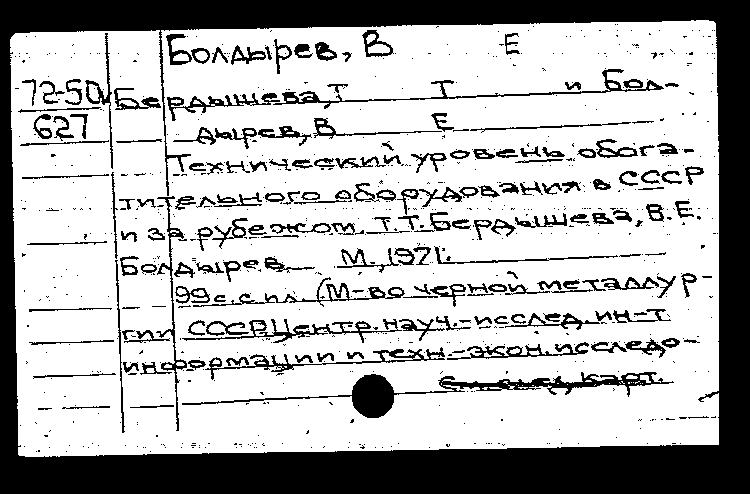 Болдырев, В Е
72-50
627
Бердышева, Т Т и Бол-
дырев, В Е
Технический уровень обога-
тительного оборудования в СССР
и за рубежом. Т.Т. Бердышева, В.Е.
Болдырев. М., 1971.
99 с. с ил. (М-во черной металлур-
гии СССР. Центр. науч.-исслед. ин-т
информации и техн.-экон. исследо-
См. след. карт.